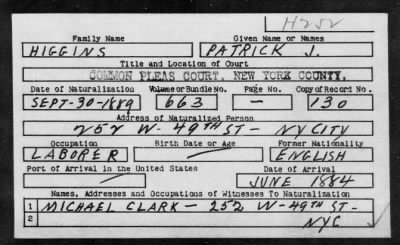 H252
Family Name Given Name or Names
HIGGINS PATRICK J.
Title and Location of Court
COMMON PLEAS COURT, NEW YORK COUNTY.
Date of Naturalization Volume or Bundle No. Page No. Copy of Record No.
SEPT-30-1889 663 — 130
Address of Naturalized Person
252 W- 49TH ST- NY CITY
Occupation Birth Date or Age Former Nationality
LABORER ENGLISH
Port of Arrival in the United States Date of Arrival
JUNE 1884
Names, Addresses and Occupations of Witnesses To Naturalization
1 MICHAEL CLARK - 252 W-49TH ST-
2 NYC